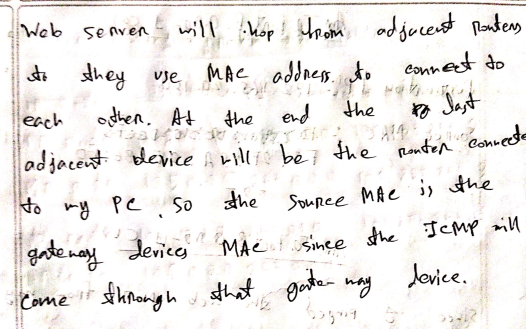 Web server will hop from adjacent routers
to they use MAC address to connect to
each other. At the end the last
adjacent device will be the router connecte
to my PC. so the source MAC is the
gateway devices MAC since the ICMP will
come through that gate-way device.